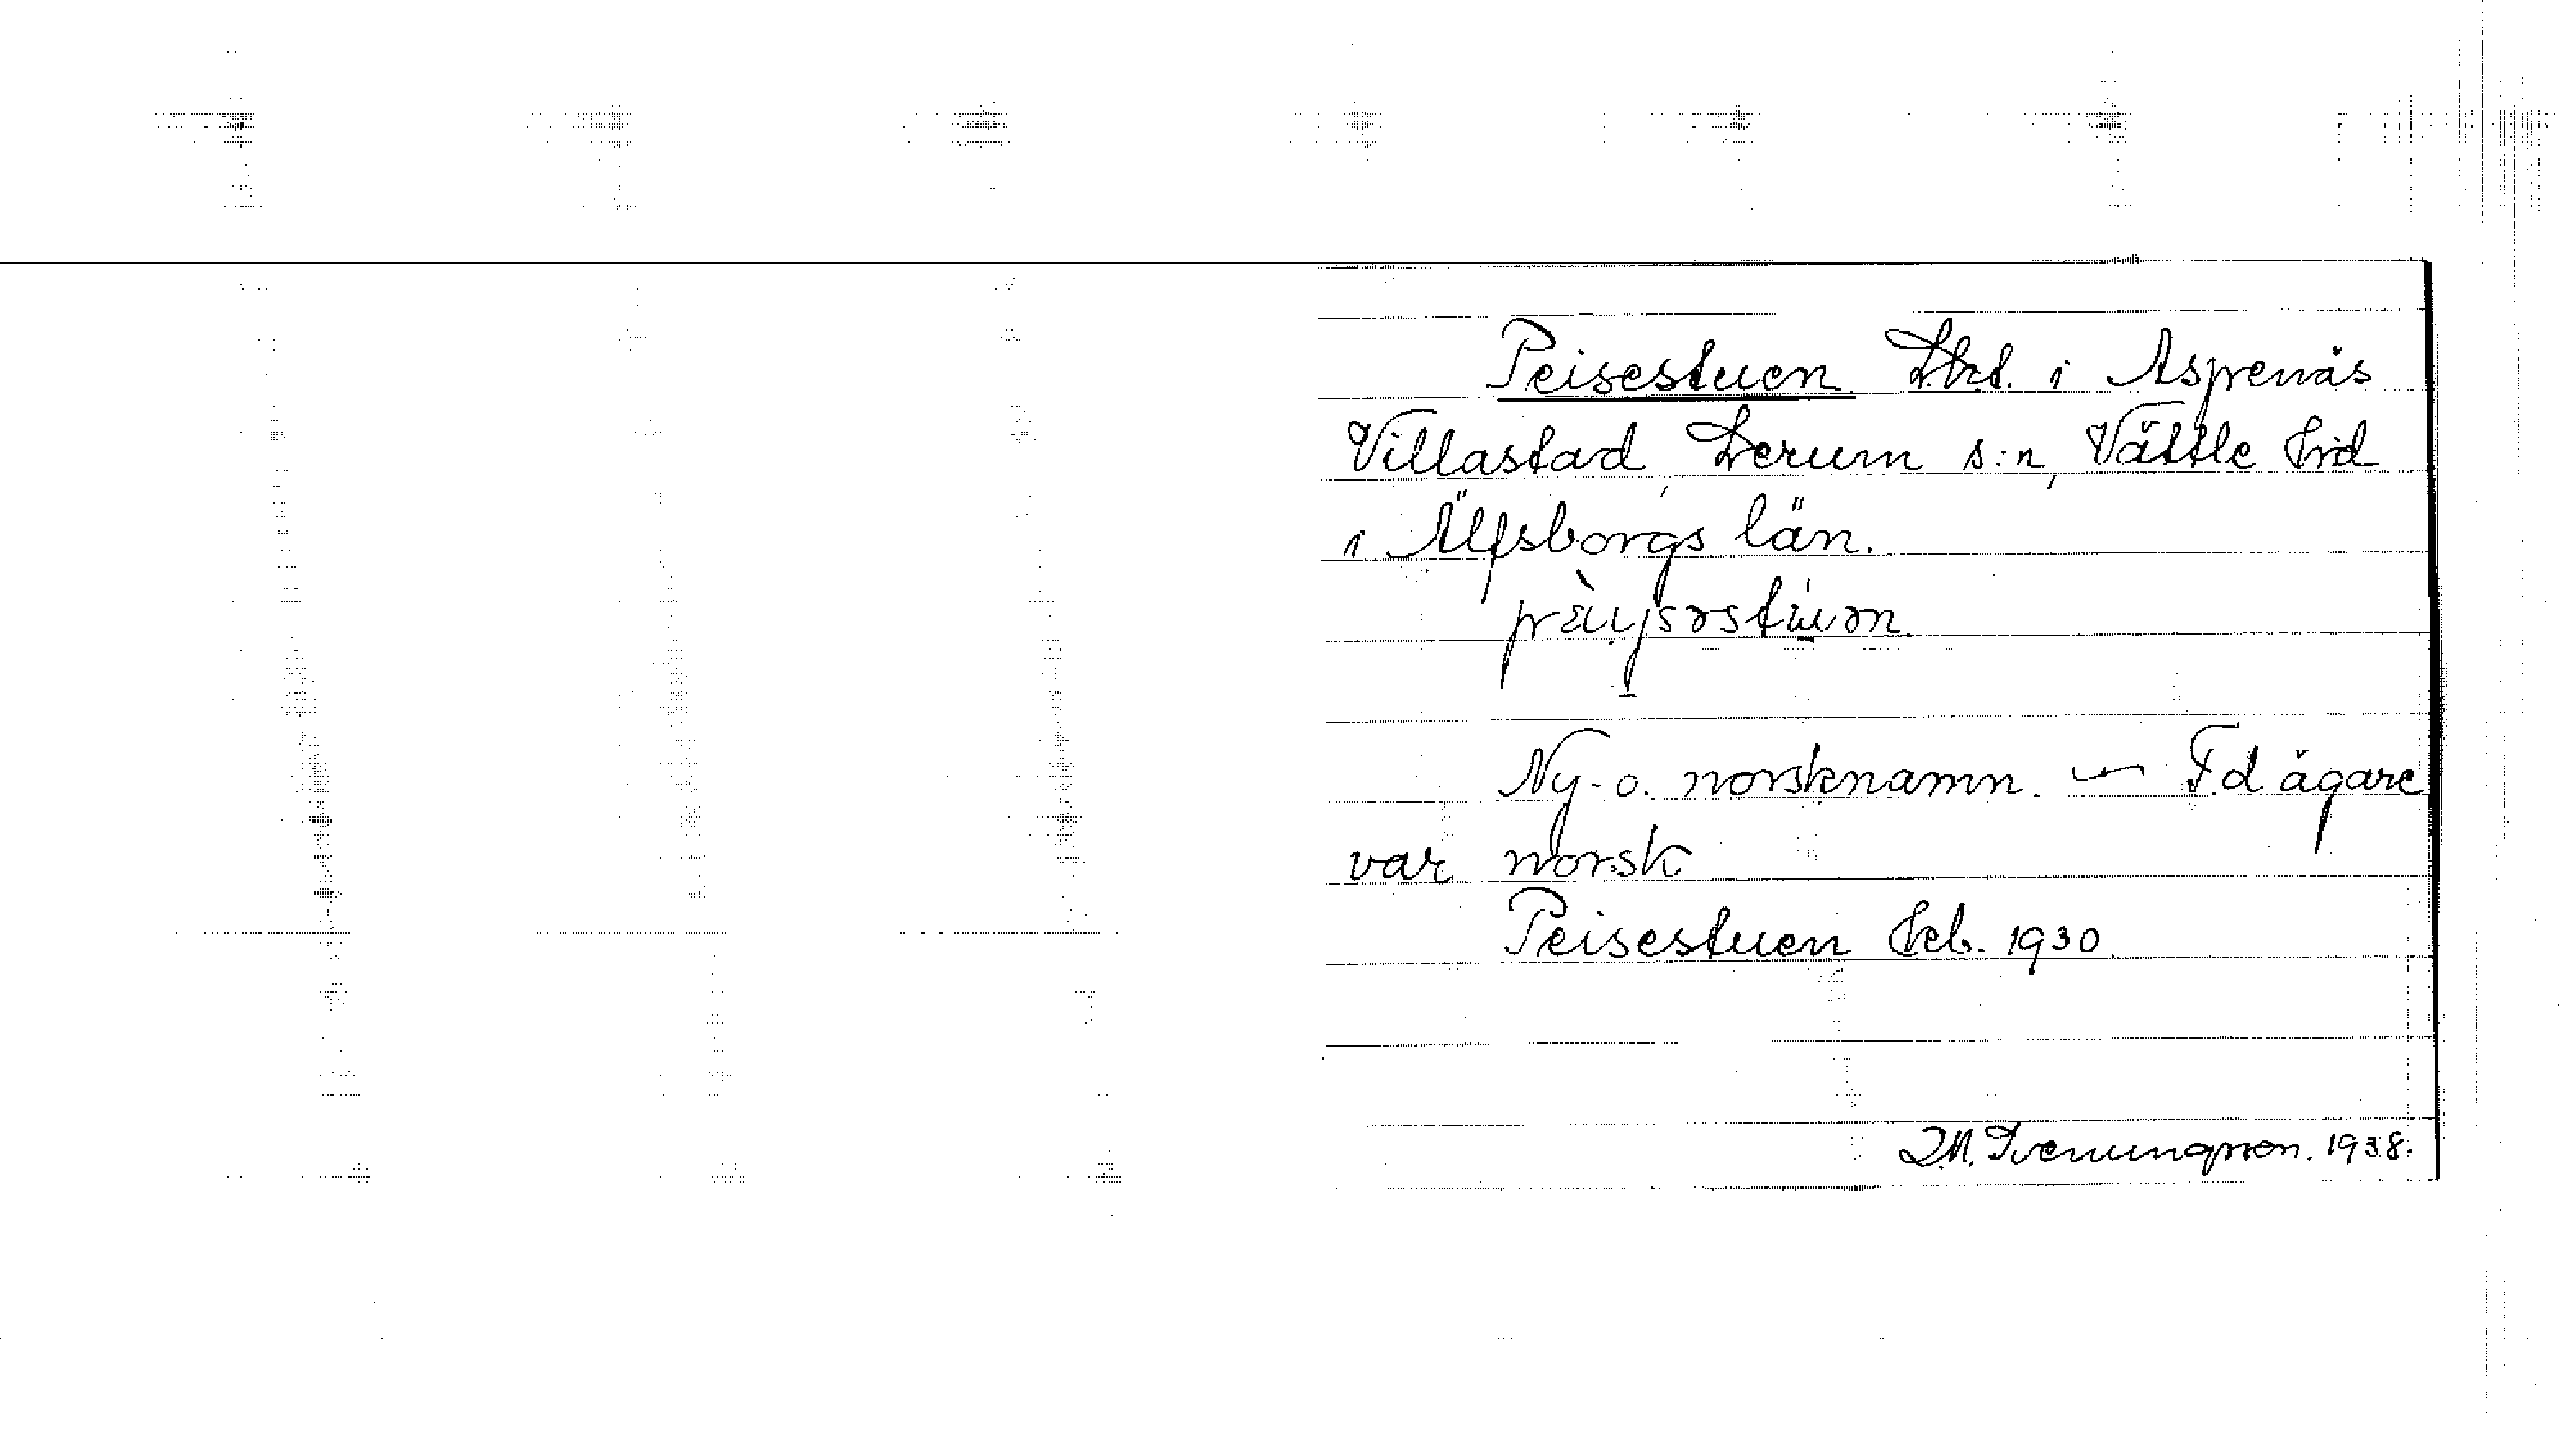 Peisestuen Lht. i Aspenäs
Villastad, Lerum s:n, Vättle hd
i Älfsborgs län.
Ny- o. norsknamn. — F.d ägare
var norsk
Peisestuen Jeb. 1930.
1938.